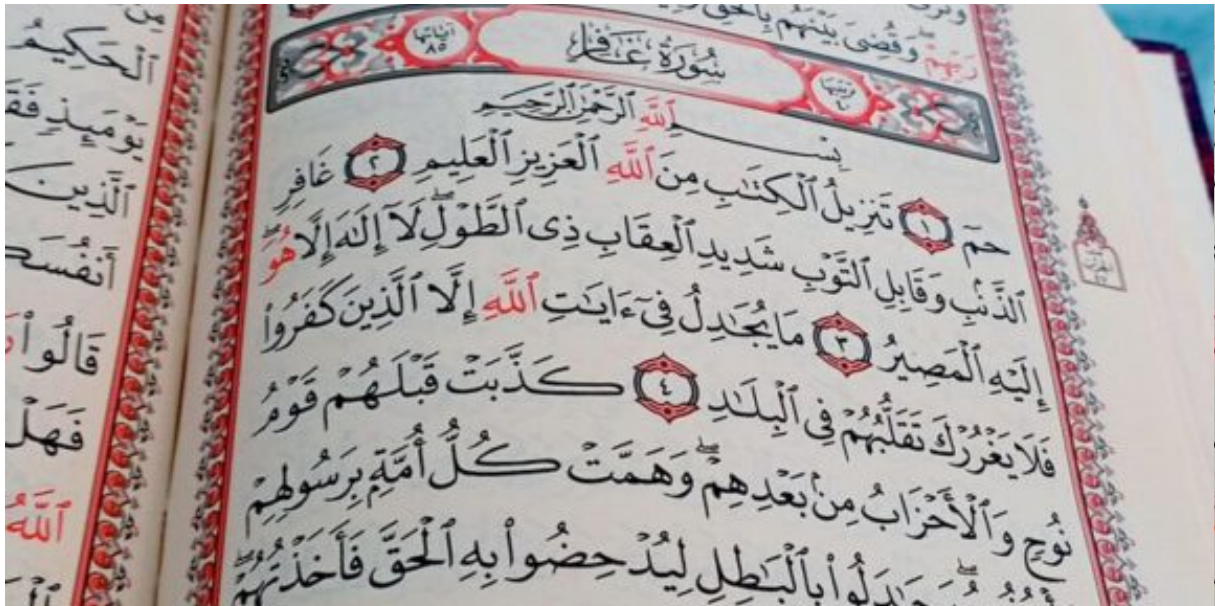 رَبِّهِمْ ۖ وَقُضِىَ بَيْنَهُم بِٱلْحَقِّ
ءَايَاتُهَا ٨٥
سُورَةُ غَافِرٍ
تَرْتِيبُهَا ٤٠
بِسْمِ ٱللَّهِ ٱلرَّحْمَٰنِ ٱلرَّحِيمِ
حمٓ ١ تَنزِيلُ ٱلْكِتَٰبِ مِنَ ٱللَّهِ ٱلْعَزِيزِ ٱلْعَلِيمِ ٢ غَافِرِ
ٱلذَّنۢبِ وَقَابِلِ ٱلتَّوْبِ شَدِيدِ ٱلْعِقَابِ ذِى ٱلطَّوْلِ ۖ لَآ إِلَٰهَ إِلَّا هُوَ ۖ
إِلَيْهِ ٱلْمَصِيرُ ٣ مَا يُجَٰدِلُ فِىٓ ءَايَٰتِ ٱللَّهِ إِلَّا ٱلَّذِينَ كَفَرُوا۟
فَلَا يَغْرُرْكَ تَقَلُّبُهُمْ فِى ٱلْبِلَٰدِ ٤ كَذَّبَتْ قَبْلَهُمْ قَوْمُ
نُوحٍ وَٱلْأَحْزَابُ مِنۢ بَعْدِهِمْ ۖ وَهَمَّتْ كُلُّ أُمَّةٍۭ بِرَسُولِهِمْ
وَجَٰدَلُوا۟ بِٱلْبَٰطِلِ لِيُدْحِضُوا۟ بِهِ ٱلْحَقَّ فَأَخَذْتُهُمْ ۖ
ٱلْحَكِيمُ
يَوْمَئِذٍ فَقَدْ
ٱلَّذِينَ
أَنفُسَكُمْ
قَالُوا۟
فَهَلْ
ٱللَّهُ